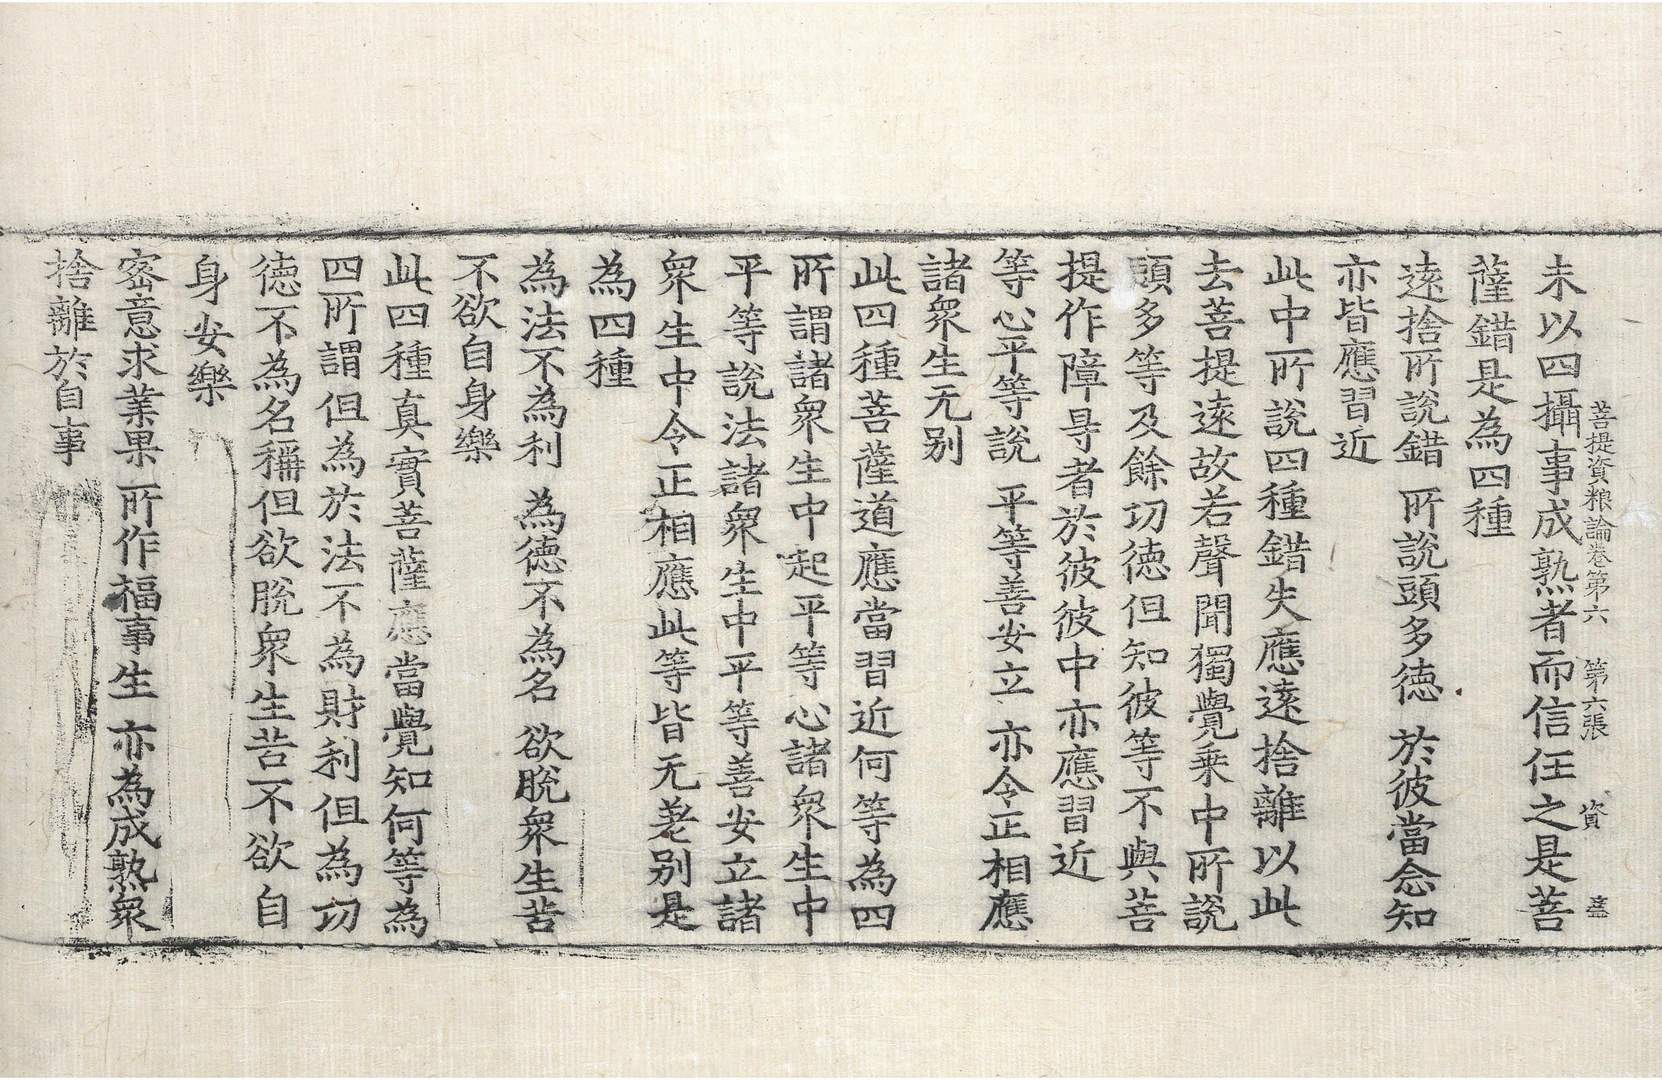 菩提資粮論卷第六　第六張　資
未以四攝事成熟者而信任之是菩
薩錯是為四種
遠捨所說錯　所說頭多德　於彼當念知
亦皆應習近
此中所說四種錯失應遠捨離以此
去菩提遠故若聲聞獨覺乗中所說
頭多等及餘切德但知彼等不與菩
提作障㝵者於彼彼中亦應習近
等心平等說　平等善安立　亦令正相應
諸衆生无别
此四種菩薩道應當習近何等為四
所謂諸衆生中起平等心諸衆生中
平等說法諸衆生中平等善安立諸
衆生中令正相應此等皆无差别是
為四種
為法不為利　為德不為名　欲脫衆生苦
不欲自身樂
此四種真實菩薩應當覺知何等為
四所謂但為於法不為財利但為切
德不為名稱但欲脫衆生苦不欲自
身安樂
密意求業果　所作福事生　亦為成熟衆
捨離於自事